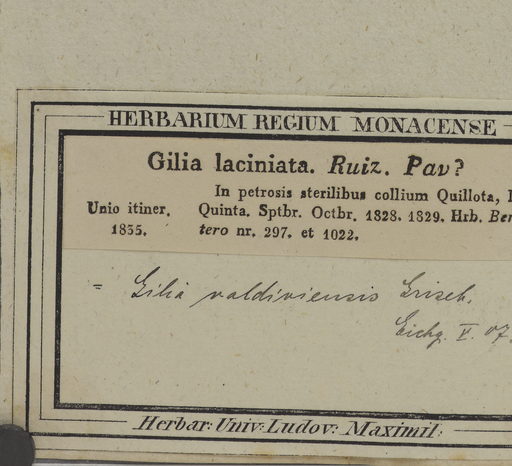 HERBARIUM REGIUM MONACENSE
Gilia laciniata. Ruiz. Pav?
In petrosis sterilibus collium Quillota,
Unio itiner. Quinta. Sptbr. Octbr. 1828. 1829. Hrb. Ber
1835. tero nr. 297. et 1022.
= Gilia valdiviensis Griseb.
Eichg. V. 07.
Herbar: Univ: Ludov: Maximil: